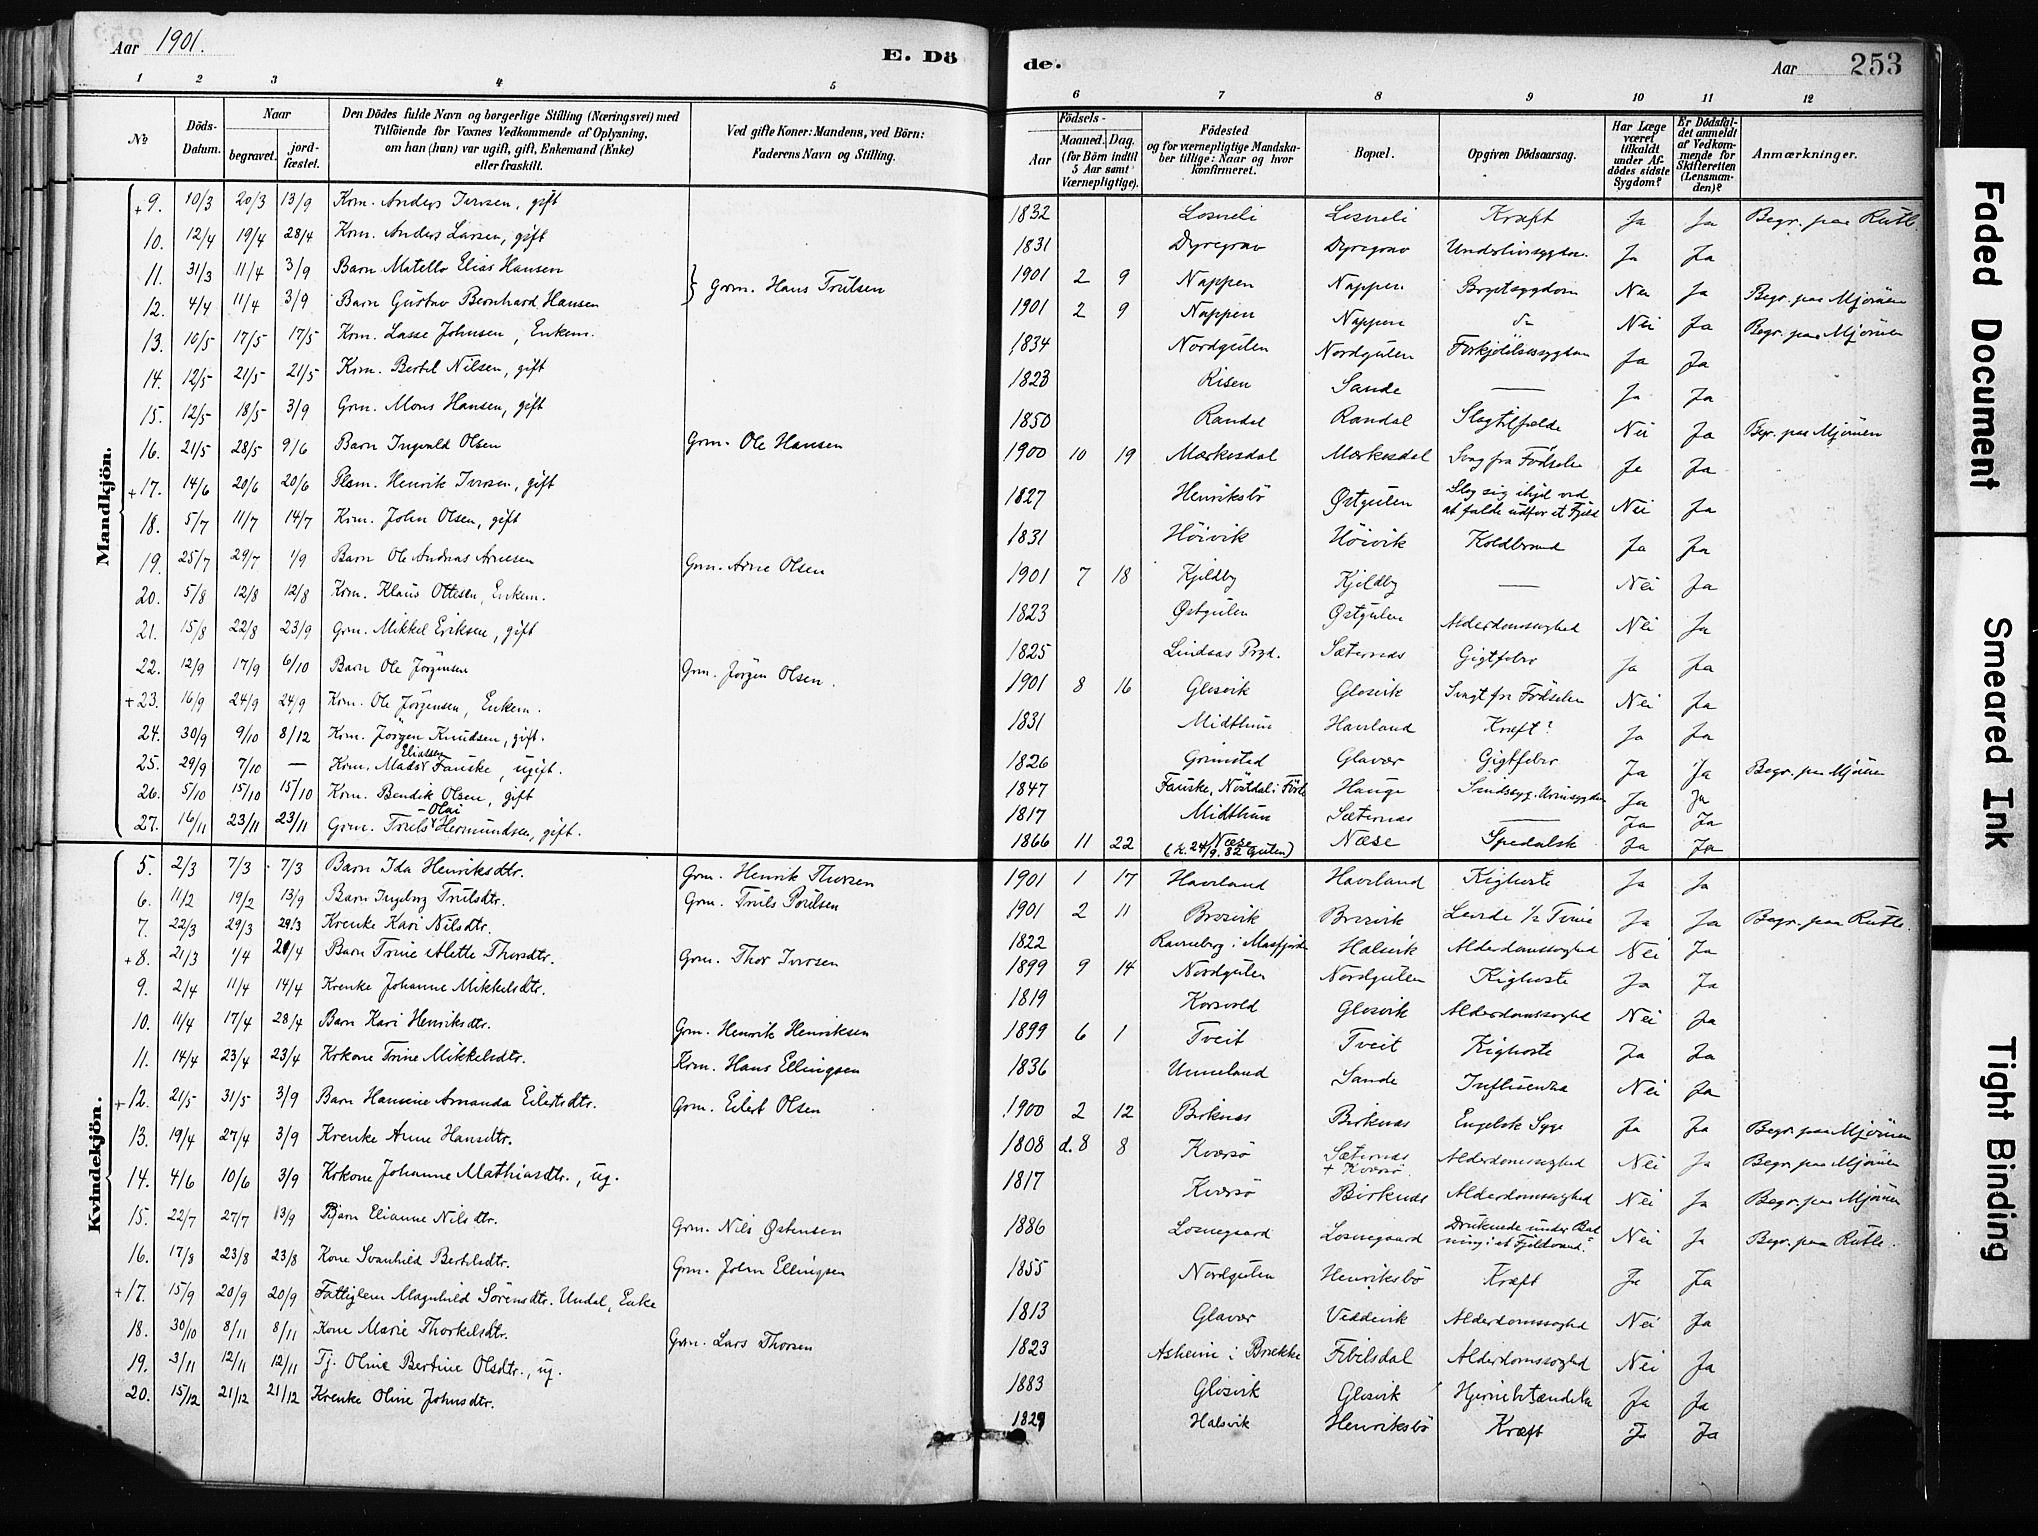 Aar 1901.
E. Dö
de.
Aar
253
1 2 3 4 5
6 7 8 9 10 11 12
No
Döds-Datum.
Naar
begravet.
jord-fæstet.
Den Dödes fulde Navn og borgerlige Stilling (Næringsvei) med
Tilföiende for Voxnes Vedkommende af Oplysning,
om han (hun) var ugift, gift, Enkemand (Enke)
eller fraskilt.
Ved gifte Koner: Mandens, ved Börn:
Faderens Navn og Stilling.
Födsels-
Aar
Maaned. Dag.
(for Börn indtil
5 Aar samt
Værnepligtige).
Födested
og for værnepligtige Mandska-
ber tillige: Naar og hvor
konfirmeret.
Bopæl.
Opgiven Dödsaarsag.
Har Læge
været
tilkaldt
under Af-
dödes sidste
Sygdom?
Er Dödsfal-
det anmeldt
af Vedkom-
mende for
Skifteretten
(Lensman-
den)?
Anmærkninger.
Mandkjön.
+9. 10/3 20/3 13/9 Krm. Anders Iversen, gift 1832 Losneli Losneli Kræft Ja Ja Begr. paa Rutle
10. 12/4 19/4 28/4 Krm. Anders Larsen, gift 1831 Dyregrav Dyregrav Underlivssygdom. Ja Ja
11. 31/3 11/4 3/9 Barn Matello Elias Hansen } Grm. Hans Trulsen 1901 2 9 Nappen Nappen Brystsygdom Nei Ja Begr. paa Mjømen
12. 4/4 11/4 3/9 Barn Gustav Bernhard Hansen 1901 2 9 Nappen Nappen do Nei Ja Begr. paa Mjømen
13. 10/5 17/5 17/5 Krm. Lasse Johnsen, Enkem. 1834 Nordgulen Nordgulen Forkjölelsessygdom Ja Ja
14. 12/5 21/5 21/5 Krm. Bertel Nilsen, gift 1823 Risen Sande — Ja Ja
15. 12/5 18/5 3/9 Grm. Mons Hansen, gift 1850 Randal Randal Slagtilfælde Nei Ja Begr. paa Mjømen
16. 21/5 28/5 9/6 Barn Ingvald Olsen Grm. Ole Hansen 1900 10 19 Mærkesdal Mærkesdal Svag fra Födselen Ja Ja
+17. 14/6 20/6 20/6 Plam. Henrik Iversen, gift 1827 Henriksbö Østgulen Slog sig ihjel ved at falde udfor et Fjeld Nei Ja
18. 5/7 11/7 14/7 Krm. John Olsen, gift 1831 Höivik Höivik Koldbrand Ja Ja
19. 25/7 29/7 1/9 Barn Ole Andreas Arnesen Grm. Arne Olsen 1901 7 18 Kjeldby Kjeldby — Nei Ja
20. 5/8 12/8 12/8 Krm. Klaus Ottesen, Enkem. 1823 Østgulen Østgulen Alderdomssvaghed Nei Ja
21. 15/8 22/8 23/9 Grm. Mikkel Eriksen, gift 1825 Lindaas Prgd. Sæternes Gigtfeber Ja Ja
22. 12/9 17/9 6/10 Barn Ole Jörgensen Grm. Jörgen Olsen. 1901 8 16 Glosvik Glosvik Svagt fra Födselen Nei Ja
+23. 16/9 24/9 24/9 Krm. Ole Jörgensen, Enkem. 1831 Midthun Haveland Kræft? Ja Ja
24. 30/9 9/10 8/12 Krm. Jörgen Knudsen, gift. 1826 Grimstad Glavær Gigtfeber Ja Ja Begr. paa Mjømen
25. 29/9 7/10 — Krm. Mads Eliassen Fauske, ugift. 1847 Fauske, Nöstdal i Förde Hauge Sindssyg. Urinsygdom Ja Ja
26. 5/10 15/10 15/10 Krm. Bendik Olsen, gift 1817 Midthun Sæternes — Ja Ja
27. 16/11 23/11 23/11 Grm. Truls Olai Hermundsen, gift. 1866 11 22 Næse (k. 24/9. 82 Gulen) Næse Spedalsk Ja Ja
Kvindekjön.
5. 2/3 7/3 7/3 Barn Ida Henriksdtr. Grm. Henrik Thorsen 1901 1 17 Haveland Haveland Kighoste Ja Ja
6. 11/2 19/2 13/9 Barn Ingeborg Trulsdtr. Grm. Truls Poulsen 1901 2 11 Brosvik Brosvik Levde 1/2 Time Ja Ja Begr. paa Rutle.
7. 22/3 29/3 29/3 Krenke Kari Nilsdtr. 1822 Ravneberg i Masfjorden Halsvik Alderdomssvaghed Nei Ja
+8. 21/3 1/4 21/4 Barn Trine Alette Thorsdtr. Grm. Thor Iversen 1899 9 14 Nordgulen Nordgulen Kighoste Ja Ja
9. 2/4 11/4 14/4 Krenke Johanne Mikkelsdtr. 1819 Korsvold Glosvik Alderdomssvaghed Nei Ja
10. 11/4 17/4 28/4 Barn Kari Henriksdtr. Grm. Henrik Henriksen 1899 6 1 Tveit Tveit Kighoste Ja Ja
11. 14/4 23/4 23/4 Krkone Trine Mikkelsdtr. Krm. Hans Ellingsen 1836 Unneland Sande Influenza Nei Ja
+12. 21/5 31/5 3/9 Barn Hansine Amanda Eilertsdtr. Grm. Eilert Olsen 1900 2 12 Birknes Birknes Engelsk Syge Ja Ja Begr. paa Mjømen
13. 19/4 27/4 3/9 Krenke Anne Hansdtr. 1808 d. 8 8 Kversö Sæternes + Kversö Alderdomssvaghed Nei Ja Begr. paa Mjømen
14. 4/6 10/6 3/9 Krkone Johanne Mathiasdtr., ug. 1817 Kversö Birknes Alderdomssvaghed Nei Ja Begr. paa Mjømen
15. 22/7 27/7 13/9 Barn Elianne Nilsdtr. Grm. Nils Østensen 1886 Losnegaard Losnegaard Druknede under Badning i et Fjeldvand. Nei Ja Begr. paa Rutle.
16. 17/8 23/8 23/8 Kone Svanhild Bertelsdtr. Grm. John Ellingsen 1855 Nordgulen Henriksbö Kræft Ja Ja
+17. 15/9 20/9 20/9 Fattiglem Magnhild Sörensdtr. Undal, Enke 1813 Glavær Veddevik Alderdomssvaghed Nei Ja
18. 30/10 8/11 8/11 Kone Marie Thorkelsdtr. Grm. Lars Thorsen 1823 Asheim i Brække Fibelsdal Alderdomssvaghed Nei Ja
19. 3/11 12/11 12/11 Tj. Oline Bertine Olsdtr., ug. 1883 Glosvik Glosvik Hjernebetændelse Ja Ja
20. 15/12 21/12 21/12 Krenke Oline Johnsdtr. 1829 Halsvik Henriksbö Kræft Ja Ja
Faded Document
Smeared Ink
Tight Binding